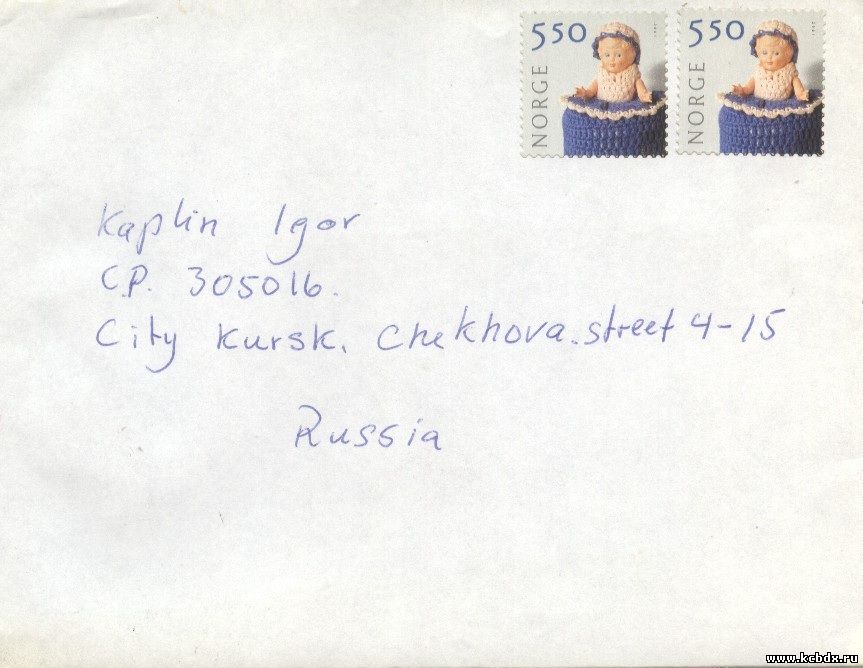 550 550
NORGE NORGE
Kaplin Igor
C.P. 305016.
City Kursk. Chekhova.street 4-15
Russia
www.kcbdx.ru